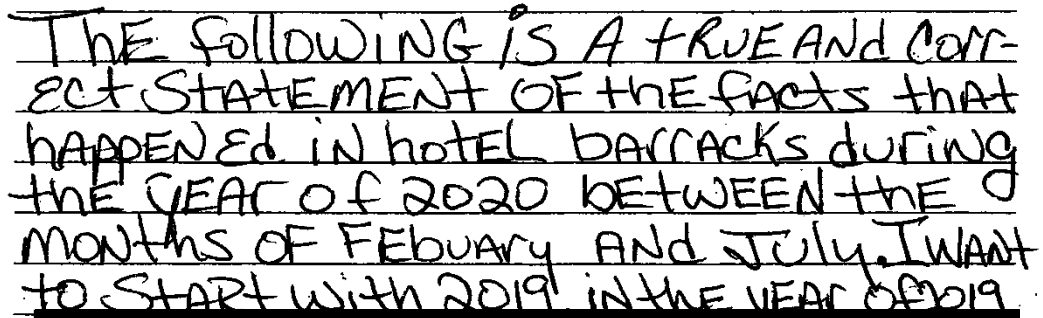 ThE following is A tRUE ANd Corr-
Ect StAtEMENt OF thE fActs thAt
hAppENEd iN hotEL bArrAcks during
thE YEAr of 2020 bEtwEEN thE
MONths OF FEbuAry ANd July. I WANt
to StARt With 2019 in thE YEAr Of 2019